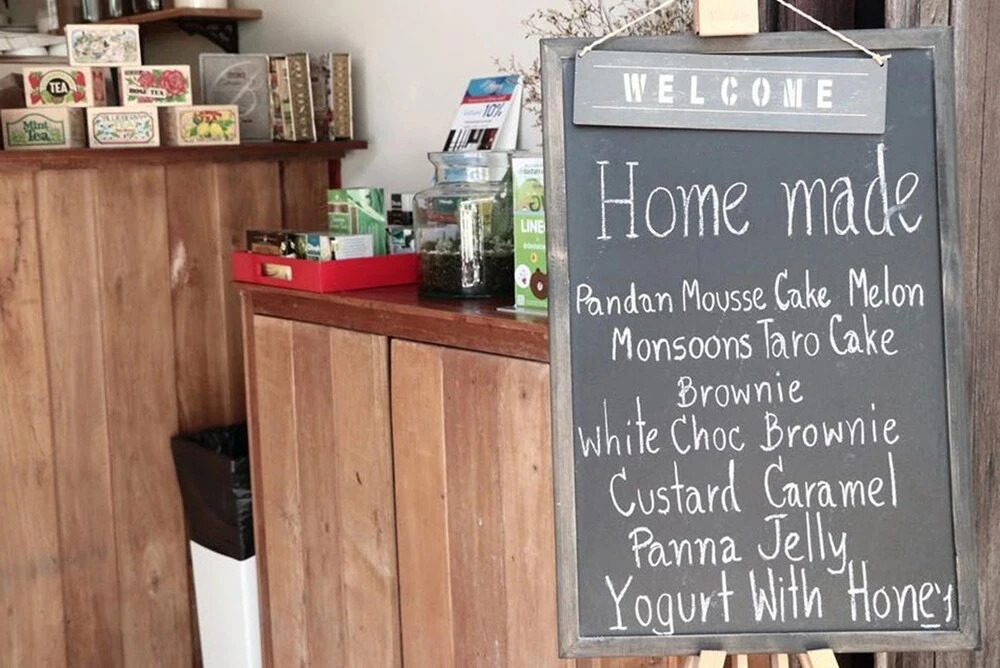 WELCOME
Home made
Pandan Mousse Cake Melon
Monsoons Taro Cake
Brownie
White Choc Brownie
Custard Caramel
Panna Jelly
Yogurt With Honey
TEA
ROSE TEA
Mint
Tea
10%
LINE